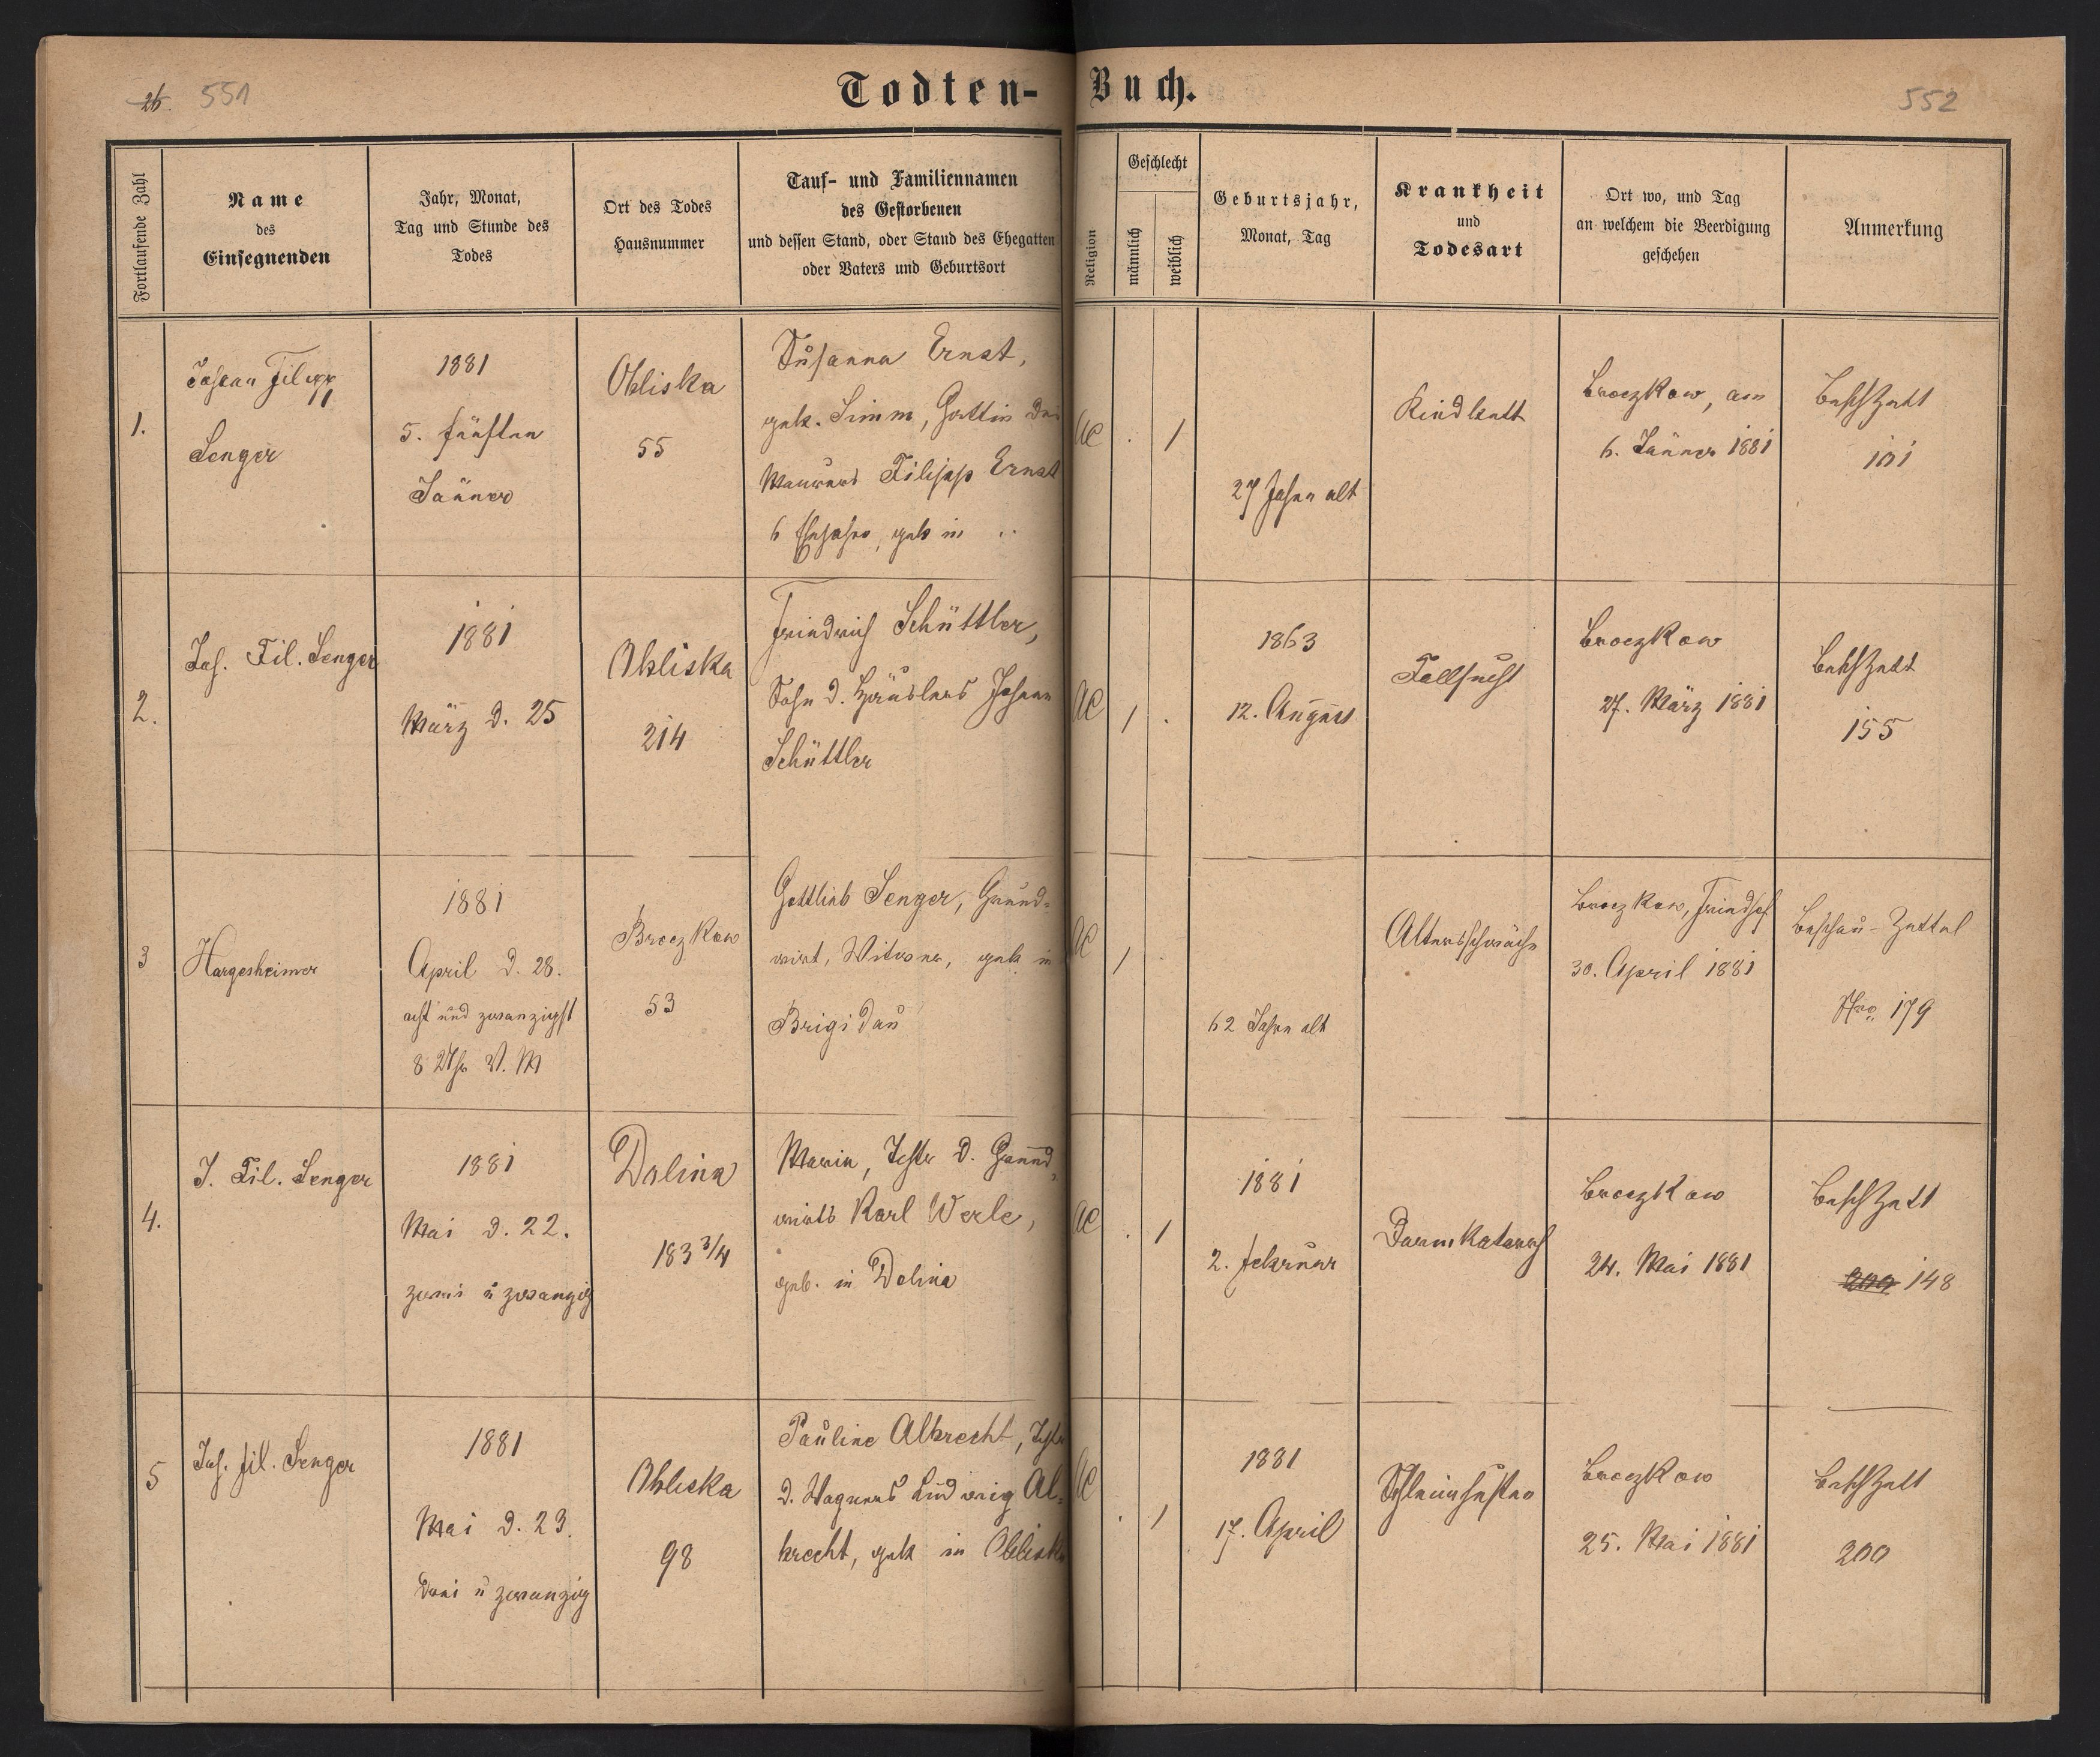 26. 551
Todten-Buch.
552
Fortlaufende Zahl
Name
des
Einsegnenden
Jahr, Monat,
Tag und Stunde des
Todes
Ort des Todes
Hausnummer
Tauf- und Familiennamen
des Gestorbenen
und dessen Stand, oder Stand des Ehegatten
oder Vaters und Geburtsort
Religion
Geschlecht
männlich
weiblich
Geburtsjahr,
Monat, Tag
Krankheit
und
Todesart
Ort wo, und Tag
an welchem die Beerdigung
geschehen
Anmerkung
1.
Johan Filipp
Senger
1881
5. fünften
Jänner
Obliska
55
Susanna Ernst,
geb. Simm, Gattin des
Maurers Filipp Ernst
6 Ehejahre, geb in ..
AC
. 1
27 Jahre alt
Kindbett
Broczkow, am
6. Jänner 1881
BeschZett
101
2.
Joh. Fil. Senger
1881
März d. 25
Obliska
214
Friedrich Schüttler,
Sohn d. Häuslers Johann
Schüttler
AC
1 .
1863
12. August
Fallsucht
Broczkow
27. März 1881
BeschZett
155
3
Hargesheimer
1881
April d. 28.
acht und zwanzigst
8 Uhr V. M
Broczkow
53
Gottlieb Senger, Grund-
wirt, Witwer, geb in
Brigidau
AC
1 .
62 Jahre alt
Altersschwäche
Broczkow, Friedhof
30. April 1881
Beschau-Zettel
Nro. 179
4.
J. Fil. Senger
1881
Mai d. 22.
zwei u zwanzig
Dolina
183 3/4
Marie, Tochter d. Grund-
wirts Karl Werle,
geb. in Dolina
AC
. 1
1881
2. Februar
Darmkatarrh
Broczkow
24. Mai 1881
BeschZett
200 148
5
Joh. Fil. Senger
1881
Mai d. 23.
drei u zwanzig
Obliska
98
Pauline Albrecht, Tocht
d. Wagners Ludwig Al-
brecht, geb in Obliska
AC
. 1
1881
17. April
Schleimhusten
Broczkow
25. Mai 1881
BeschZett
200